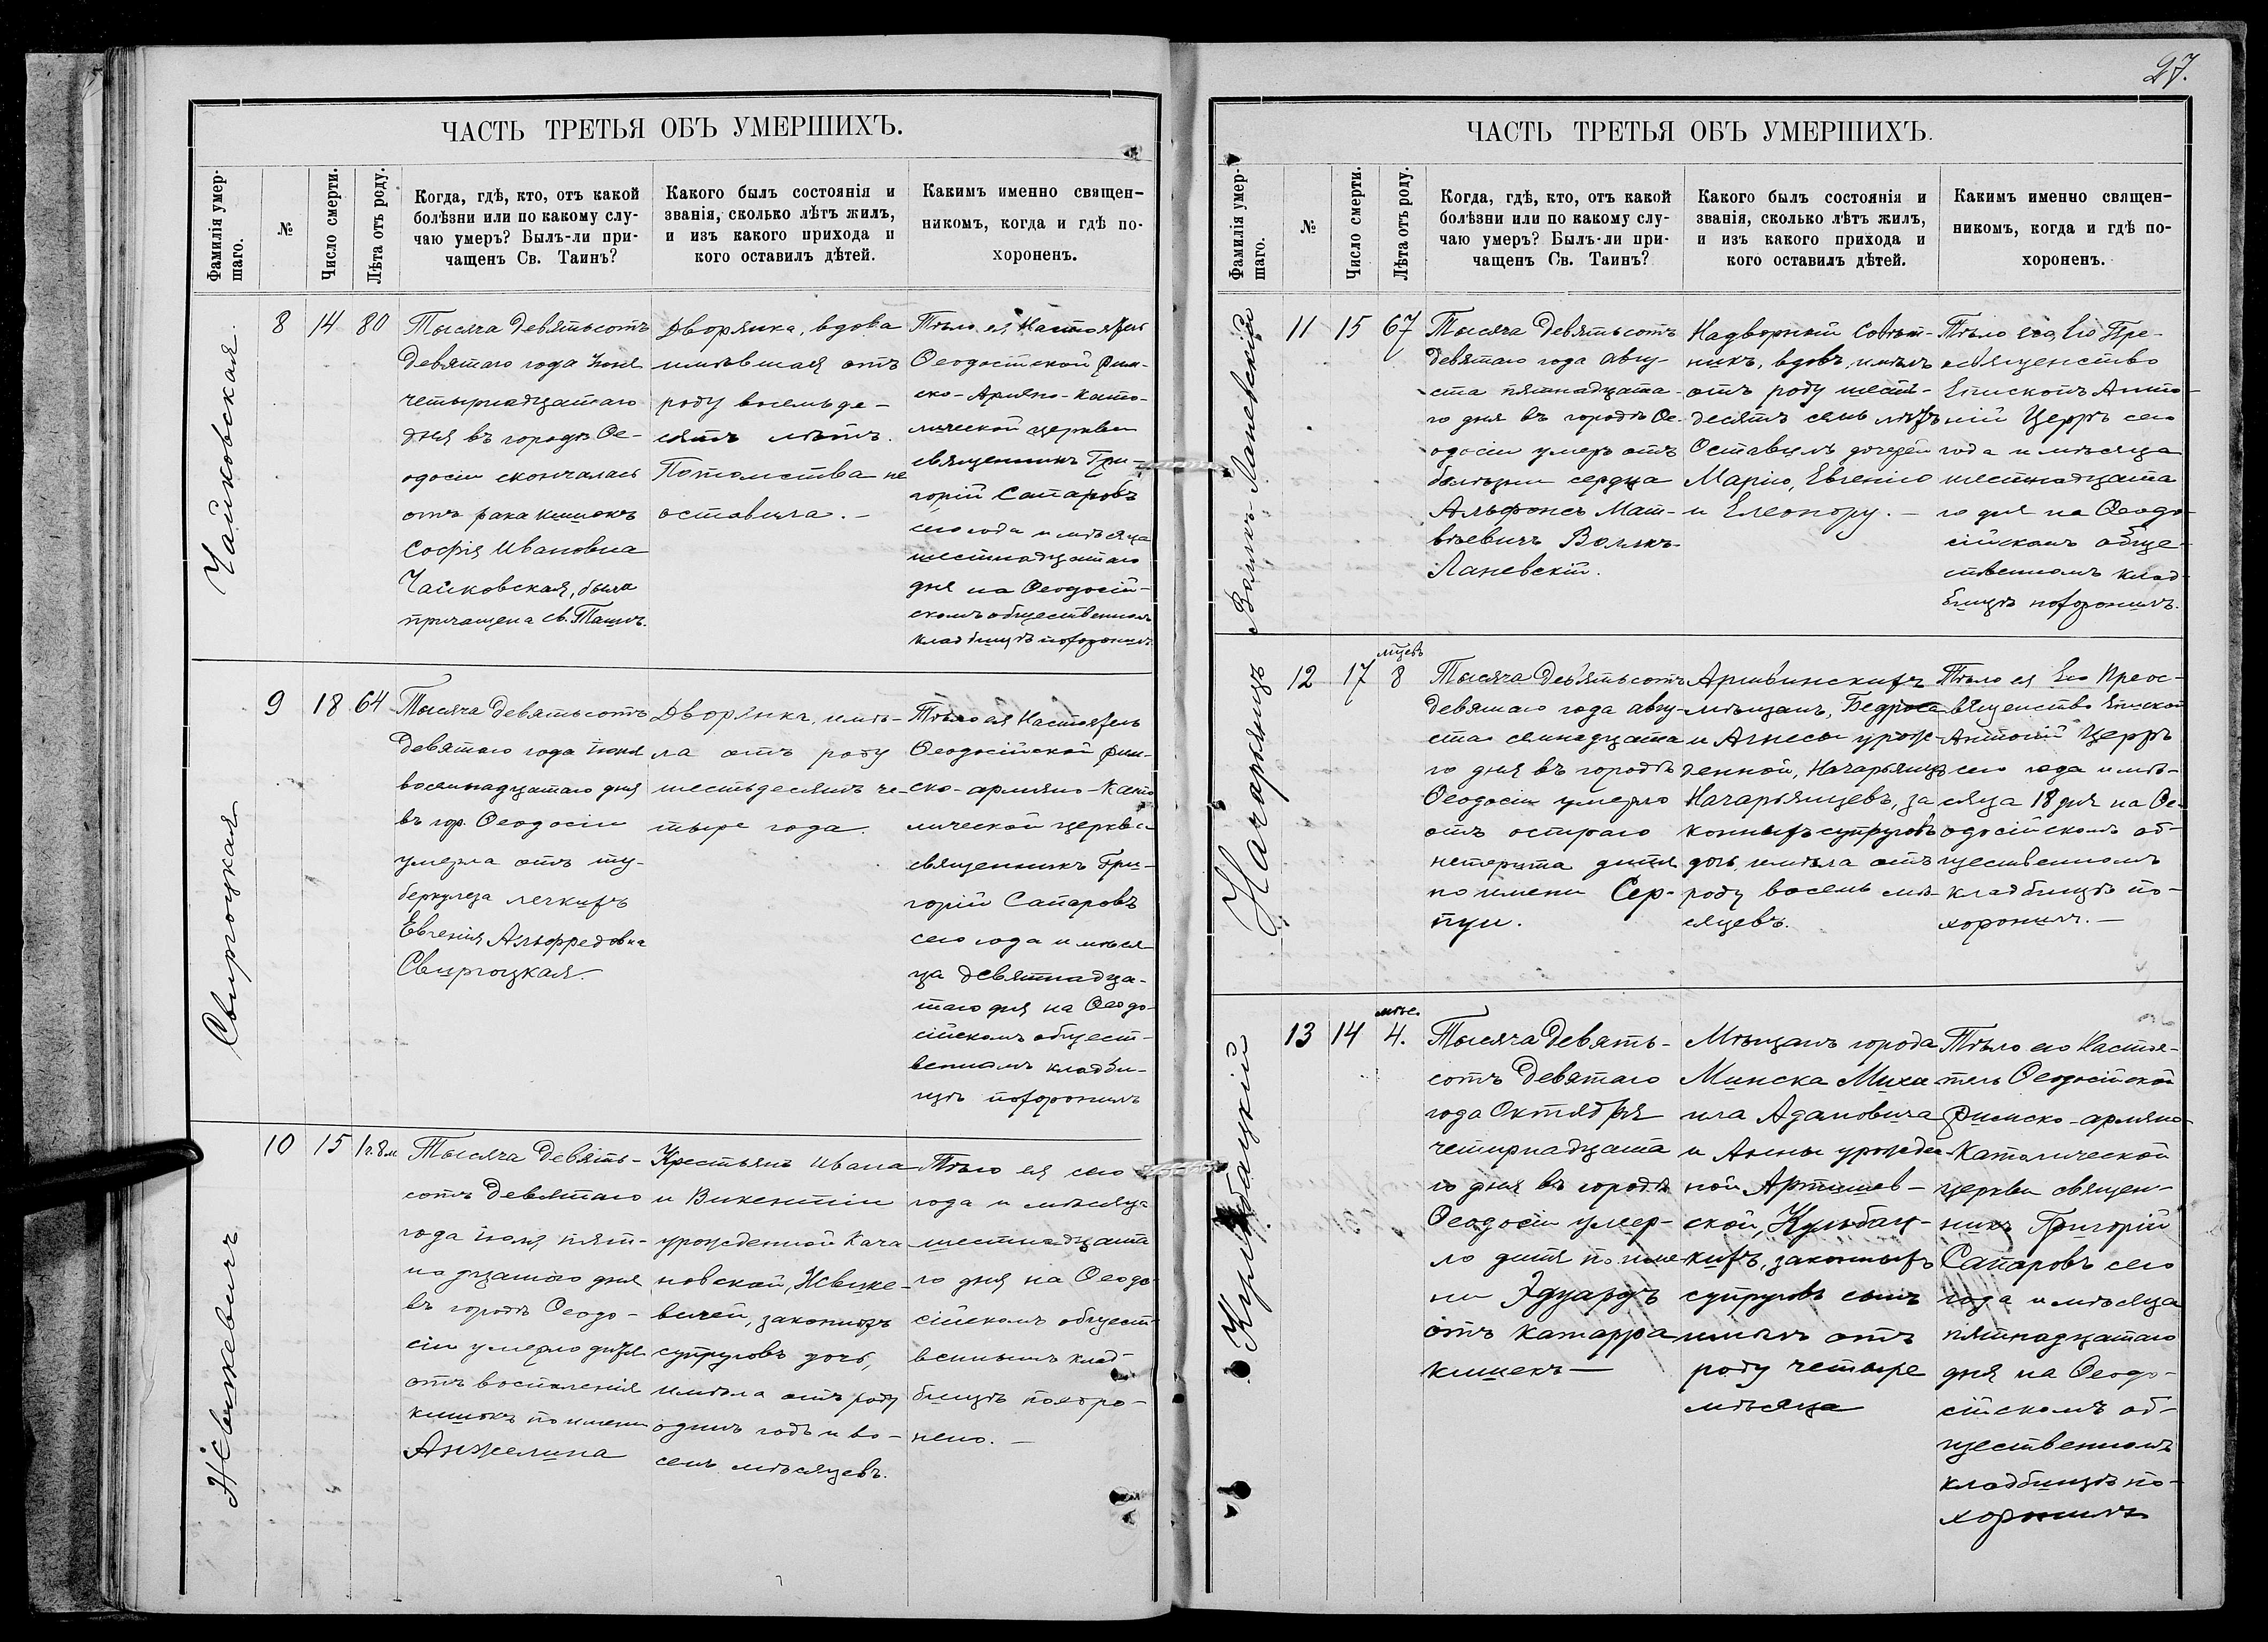 ЧАСТЬ ТРЕТЬЯ ОБЪ УМЕРШИХЪ.
Фамилія умер-
шаго.
№
Число смерти.
Лѣта отъ роду.
Когда, гдѣ, кто, отъ какой
болѣзни или по какому слу-
чаю умеръ? Былъ-ли при-
чащенъ Св. Таинъ?
Какого былъ состоянія и
званія, сколько лѣтъ жилъ,
и изъ какого прихода и
кого оставилъ дѣтей.
Каким­ъ именно священ-
никомъ, когда и гдѣ по-
хороненъ.
Чайковская.
8
14
80
Тысяча девятьсотъ
девятаго года Іюня
четырнадцатаго
дня въ городѣ Ѳе-
одосіи скончалась
отъ рака кишекъ
Софія Ивановна
Чайковская, была
причащена св. Таинъ.
Дворянка, вдова
имѣвшая отъ
роду восемьде-
сятъ лѣтъ.
Потомства не
оставила. -
Тѣло ея Настоятель
Ѳеодосійской Рим-
ско-Армяно-Като-
лической церкви
священникъ Гри-
горій Сапаровъ
сего года и мѣсяца
шестнадцатаго
дня на Ѳеодосій-
скомъ общественномъ
кладбищѣ похоронилъ.
Свиргоцкая
9
18
64
Тысяча девятьсотъ
девятаго года іюня
восемнадцатаго дня
въ гор. Ѳеодосіи
умерла отъ ту-
беркулеза легкихъ
Евгенія Альфредовна
Свиргоцкая.
Дворянка, имѣ-
ла отъ роду
шестьдесятъ че-
тыре года.
Тѣло ея Настоятель
Ѳеодосійской Рим-
ско-армяно-Като
лической церкви
священникъ Гри-
горій Сапаровъ
сего года и мѣся
ца девятнадца-
таго дня на Ѳеодо-
сійскомъ общест-
венномъ кладби-
щѣ похоронилъ
Живжевичъ
10
15
1г.8м
Тысяча девять-
сотъ девятаго
года іюля пят-
надцатаго дня
въ городѣ Ѳеодо-
сіи умерло дитя
отъ воспаленія
кишекъ по имени
Анжелина
Крестьянъ Ивана
и Викентіи
урожденной Кача
новской,
вичей, законныхъ
супруговъ дочь,
имѣла отъ роду
одинъ годъ и во-
семь мѣсяцевъ.
Тѣло ея сего
года и мѣсяца
шестнадцата
го дня на Ѳеодо-
сійскомъ общест-
венномъ клад-
бищѣ похоро-
нено. -
27.
ЧАСТЬ ТРЕТЬЯ ОБЪ УМЕРШИХЪ.
Фамилія умер-
шаго.
№
Число смерти.
Лѣта отъ роду.
Когда, гдѣ, кто, отъ какой
болѣзни или по какому слу-
чаю умеръ? Былъ-ли при-
чащенъ Св. Таинъ?
Какого былъ состоянія и
званія, сколько лѣтъ жилъ,
и изъ какого прихода и
кого оставилъ дѣтей.
Какимъ именно священ-
никомъ, когда и гдѣ по-
хороненъ.
Волкъ-Ланевскій
11
15
67
Тысяча девятьсотъ
девятаго года авгу-
ста пятнадцата-
го дня въ городѣ Ѳе-
одосіи умеръ отъ
болѣзни сердца
Альфонсъ Мат-
вѣевичъ Волкъ-
Ланевскій.
Надворный Совѣт-
никъ, вдовъ, имѣлъ
отъ роду шесть-
десятъ семь лѣтъ
Оставилъ дочерей
Марію, Евгенію
и Елеонору. -
Тѣло его, Его Пре-
освященство
Епископъ Анто-
ній Церръ сего
года и мѣсяца
шестнадцата
го дня на Ѳеодо
сійскомъ обще-
ственномъ клад-
бищѣ похоронилъ.
Начарянцъ
12
17
мѣцевъ
8
Тысяча девятьсотъ
девятаго года авгу-
ста семнадцата
го дня въ городѣ
Ѳеодосіи умерло
отъ остраго
нетерита дитя
по имени Сер-
пуи.
Артвинскихъ
мѣщанъ, Бедроса
и Агнесы урож-
денной, Начарьянцъ
Начарьянцевъ, за
конныхъ супруговъ
дочь, имѣла отъ
роду восемь мѣ-
сяцевъ.
Тѣло ея Его Преос-
вященство Епископ
Антоній Церръ
сего года и мѣ-
сяца 18 дня на Ѳе-
одосійскомъ об-
щественномъ
кладбищѣ по-
хоронилъ. -
Кульбацкій
13
14
мѣс.
4.
Тысяча девять-
сотъ девятаго
года Октября
четырнадцата
го дня въ городѣ
Ѳеодосіи умер-
ло дитя по име
ни Эдуардъ
отъ катарра
кишекъ —
Мѣщанъ города
Минска Миха
ила Адамовича
и Анны урожден
ной Артишев-
ской, Кульбац-
кихъ, законныхъ
супруговъ сынъ
имѣлъ отъ
роду четыре
мѣсяца
Тѣло его Настоя-
тель Ѳеодосійской
Римско-армяно-
Католической
церкви священ-
никъ Григорій
Сапаровъ сего
года и мѣсяца
пятнадцатаго
дня на Ѳеодо-
сійскомъ об-
щественномъ
кладбищѣ по-
хоронилъ